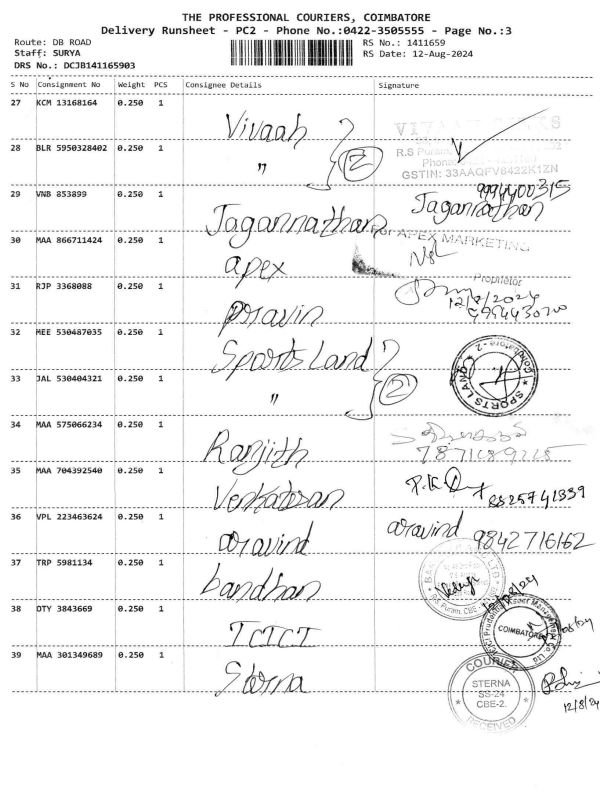 THE PROFESSIONAL COURIERS, COIMBATORE
Delivery Runsheet - PC2 - Phone No.:0422-3505555 - Page No.:3
Route: DB ROAD
Staff: SURYA
DRS No.: DCJB141165903
RS No.: 1411659
RS Date: 12-Aug-2024
S No Consignment No Weight PCS Consignee Details Signature
27 KCM 13168164 0.250 1 Vivaah
28 BLR 5950328402 0.250 1 " 2
R.S Puram
Phone
GSTIN: 33AAQFV6422K1ZN
29 VNB 853899 0.250 1 Jagannathan Jagannathan
9994400315
30 MAA 866711424 0.250 1 apex
For APEX MARKETING
Proprietor
31 RJP 3368088 0.250 1 pravin
12/8/2024
32 MEE 530487035 0.250 1 Sports Land
33 JAL 530404321 0.250 1 " 2
SPORTS LAND Coimbatore - 2
34 MAA 575066234 0.250 1 Ranjith
35 MAA 704392540 0.250 1 Venkatesan
8825741339
36 VPL 223463624 0.250 1 aravind aravind 9842716162
37 TRP 5981134 0.250 1 bandhan
12/08/24
38 OTY 3843669 0.250 1 ICICI
COIMBATORE
39 MAA 301349689 0.250 1 Sterna
COURIER
STERNA
SS-24
CBE-2.
RECEIVED
12/8/24